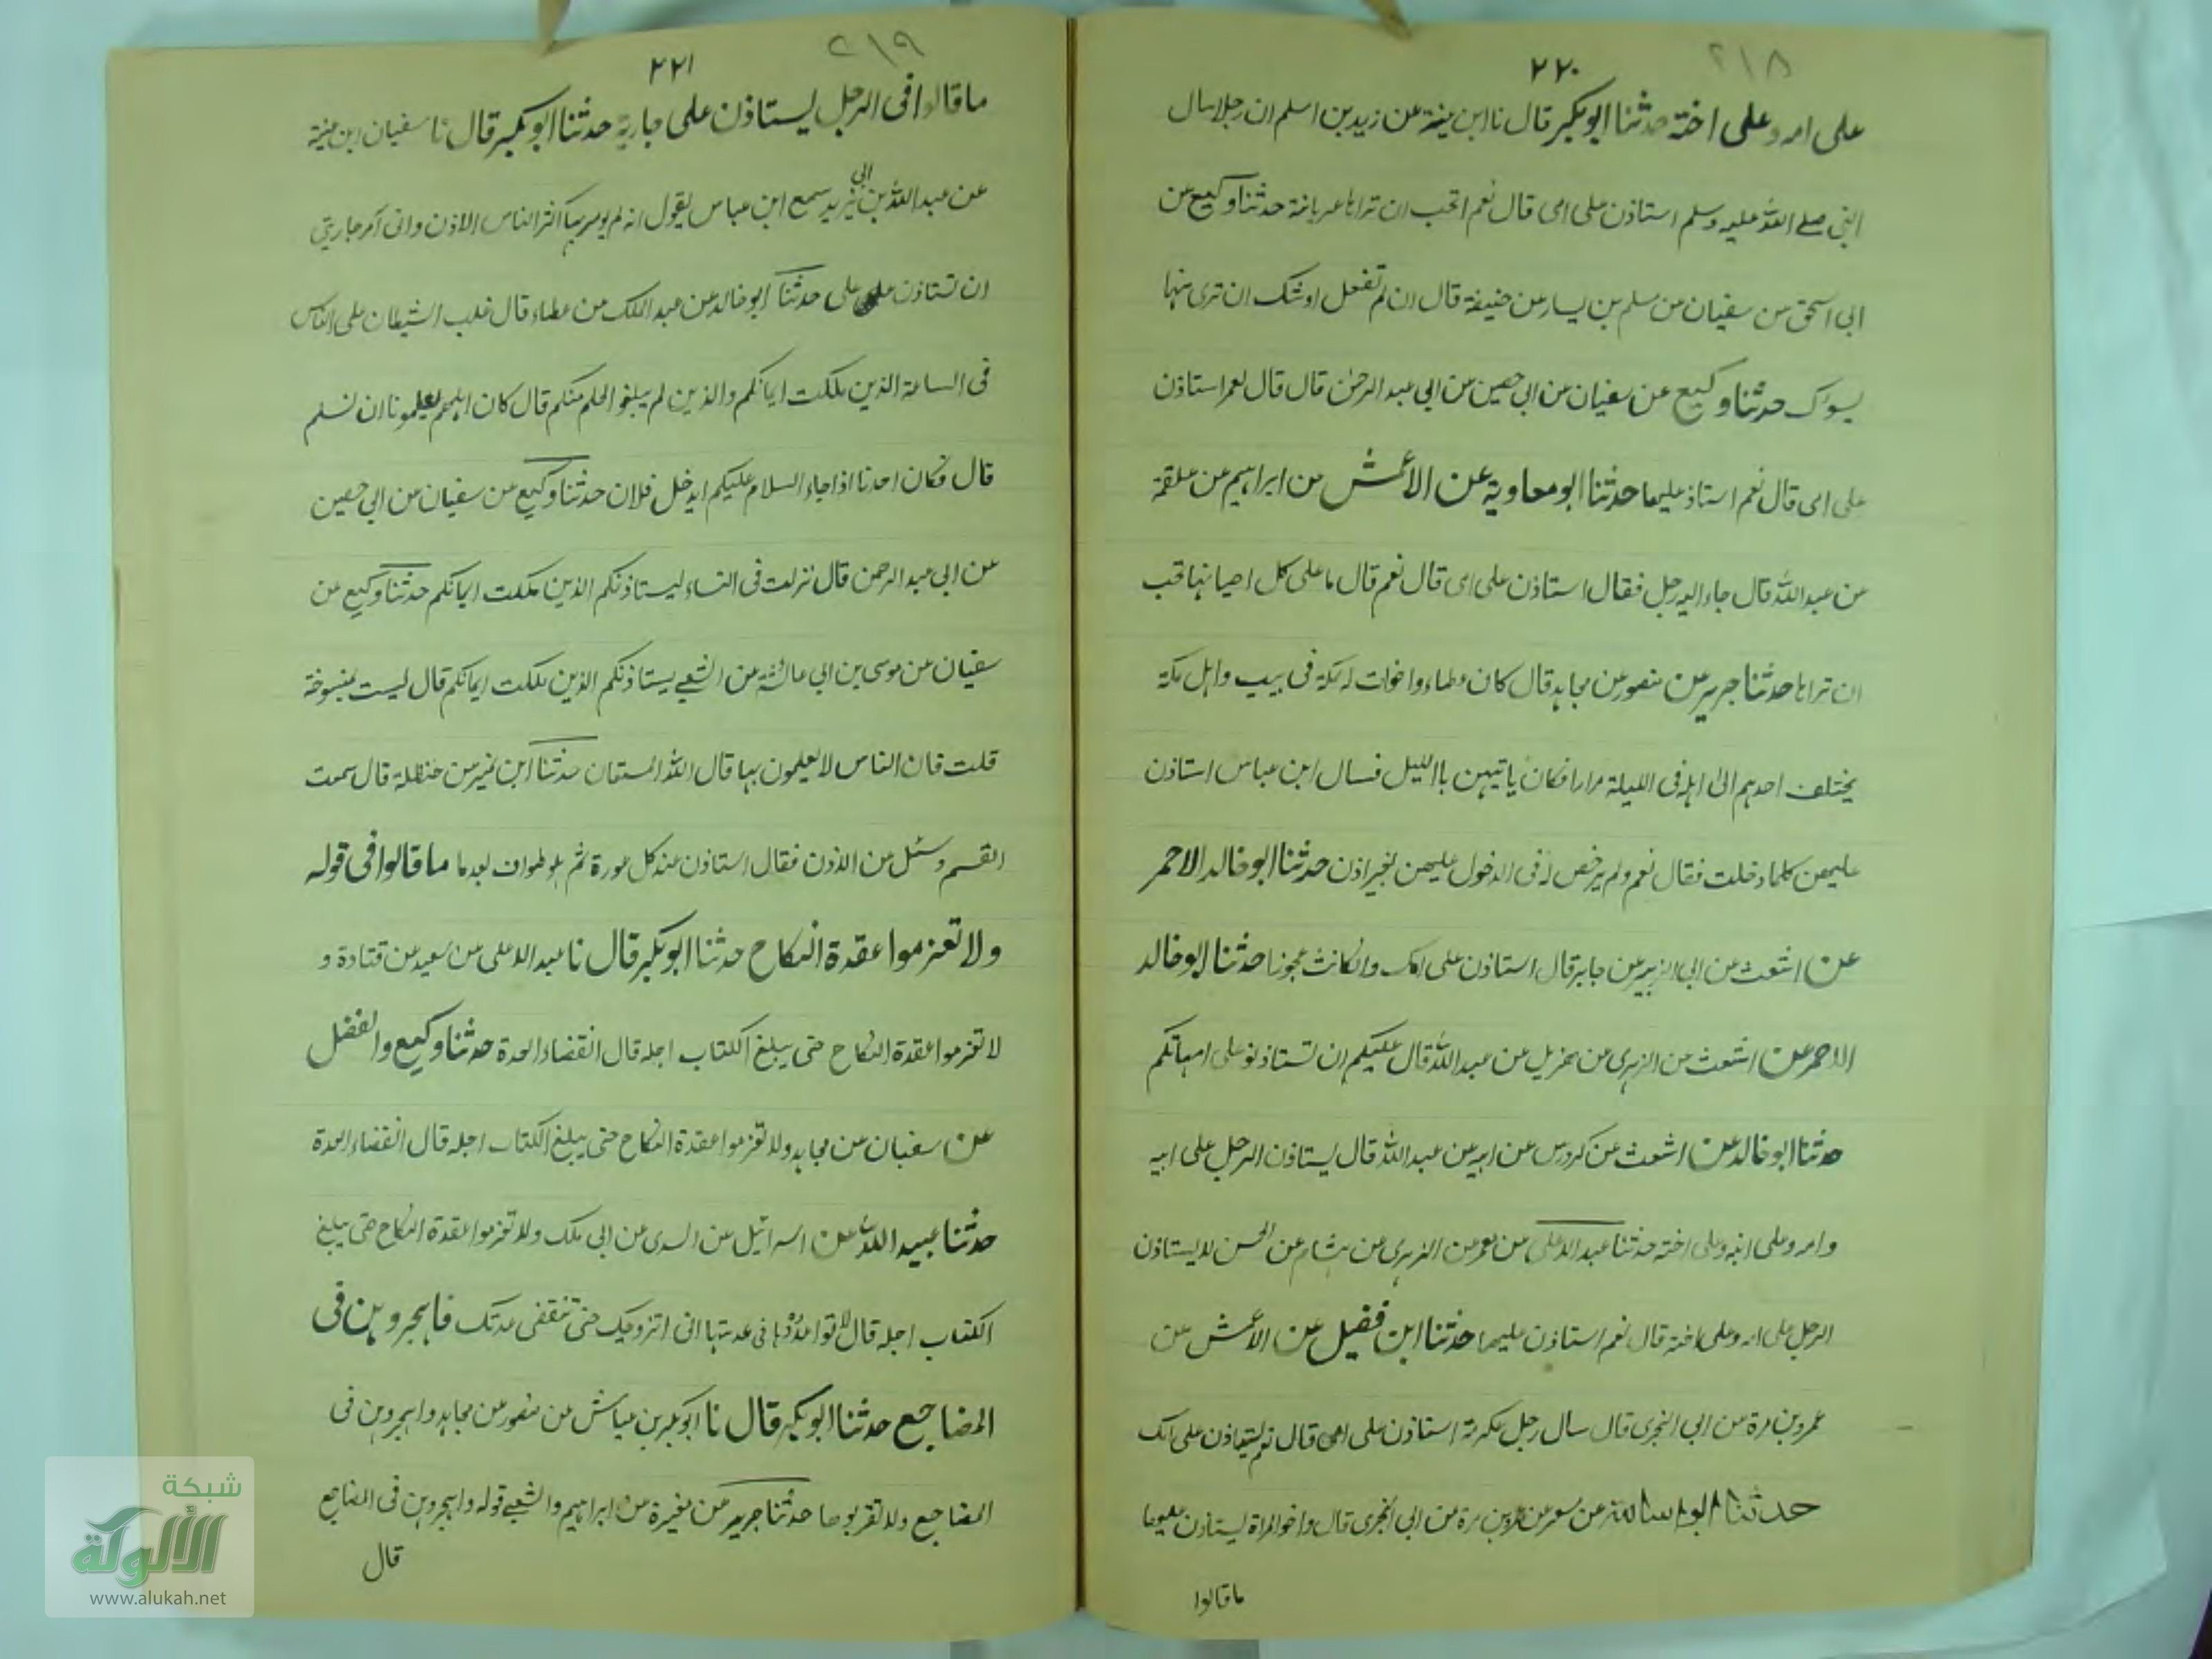 ٢١٨
٢٢٠
على امه وعلى اخته حدثنا ابو بكر قال نا ابن عيينة عن زيد بن اسلم ان رجلا سال
النبي صلے الله عليه وسلم استاذن على امى قال نعم اتحب ان تراها عريانة حدثنا وكيع عن
ابى اسحق عن سفيان عن مسلم بن يسار عن حذيفة قال ان لم تفعل اوشك ان ترى منها
يسوك حدثنا وكيع عن سفيان عن ابى حصين عن ابى عبد الرحمن قال قال لعمر استاذن
على امى قال نعم استاذ عليها حدثنا ابو معاوية عن الاعمش عن ابراهيم عن علقمة
عن عبد الله قال جاء اليه رجل فقال استاذن على امى قال نعم قال ما على كل احيانها تحب
ان تراها حدثنا جرير عن منصور عن مجاهد قال كان عطاء واخوات له بمكة فى بيت واهل مكة
يختلف احدهم الى اهله فى الليلة مرارا فكان ياتيهن باالليل فسال ابن عباس استاذن
عليهن كلما دخلت فقال نعم ولم يرخص له فى الدخول عليهن بغير اذن حدثنا ابو خالد الاحمر
عن اشعث عن ابى الزبير عن جابر قال استاذن على امك وان كانت عجوزا حدثنا ابو خالد
الاحمر عن اشعث عن الزهرى عن هزيل عن عبد الله قال عليكم ان تستاذنو على امهاتكم
حدثنا ابو خالد عن اشعث عن كردوس عن ابيه عن عبد الله قال يستاذن الرجل على ابيه
وامه وعلى ابنه وعلى اخته حدثنا عبد الاعلى عن معمر عن الزهرى عن هشام عن الحسن لا يستاذن
الرجل على امه وعلى اخته قال نعم استاذن عليها حدثنا ابن فضيل عن الاعمش عن
عمرو بن مرة عن ابى البخترى قال سال رجل عكرمة استاذن على امى قال نعم استاذن على امك
حدثنا ابو اسامة عن مسعر عن عمرو بن مرة عن ابى البخترى قال واخو المراة ليستاذن عليها
ما قالوا
٢١٩
٢٢١
ما قالوا فى الرجل ليستاذن على جارية حدثنا ابو بكر قال نا سفيان ابن عيينة
عن عبد الله بن ابى يزيد سمع ابن عباس يقول انه لم يومر بها اكثر الناس الاذن وانى آمر جاريتي
ان تستاذن على حدثنا ابو خالد عن عبد الملك عن عطاء قال غلب الشيطان على الناس
فى الساعة الذين ملكت ايمانكم والذين لم يبلغوا الحلم منكم قال كان اهلهم يعلمونا ان نسلم
قال فكان احدنا اذا جاء السلام عليكم ايدخل فلان حدثنا وكيع عن سفيان عن ابى حصين
عن ابى عبد الرحمن قال نزلت فى النساء ليستاذنكم الذين ملكت ايمانكم حدثنا وكيع عن
سفيان عن موسى بن ابى عائشة عن الشعبے يستاذنكم الذين ملكت ايمانكم قال ليست بمنسوخة
قلت فان الناس لا يعلمون بها قال الله المستعان حدثنا ابن نمير عن حنظلة قال سمعت
القسم وسئل عن الاذن فقال استاذن عند كل عورة ثم هو طواف بعدها ما قالوا فى قوله
ولا تعزموا عقدة النكاح حدثنا ابو بكر قال نا عبد الاعلى عن سعيد عن قتادة و
لا تعزموا عقدة النكاح حتى يبلغ الكتاب اجله قال انقضاء العدة حدثنا وكيع والفضل
عن سفيان عن مجاهد ولا تعزموا عقدة النكاح حتى يبلغ الكتاب اجله قال انقضاء العدة
حدثنا عبيد الله عن اسرائيل عن السدى عن ابى ملك ولا تعزموا عقدة النكاح حتى يبلغ
الكتاب اجله قال لا تواعدها فى عدتها انى اتزوجك حتى تنقضى عدتك فاهجروهن فى
المضاجع حدثنا ابو بكر قال نا ابو بكر بن عياش عن منصور عن مجاهد واهجروهن فى
المضاجع ولا تقربوها حدثنا جرير عن مغيرة عن ابراهيم والشعبے قوله واهجروهن فى المضاجع
قال
شبكة
الألوكة
www.alukah.net